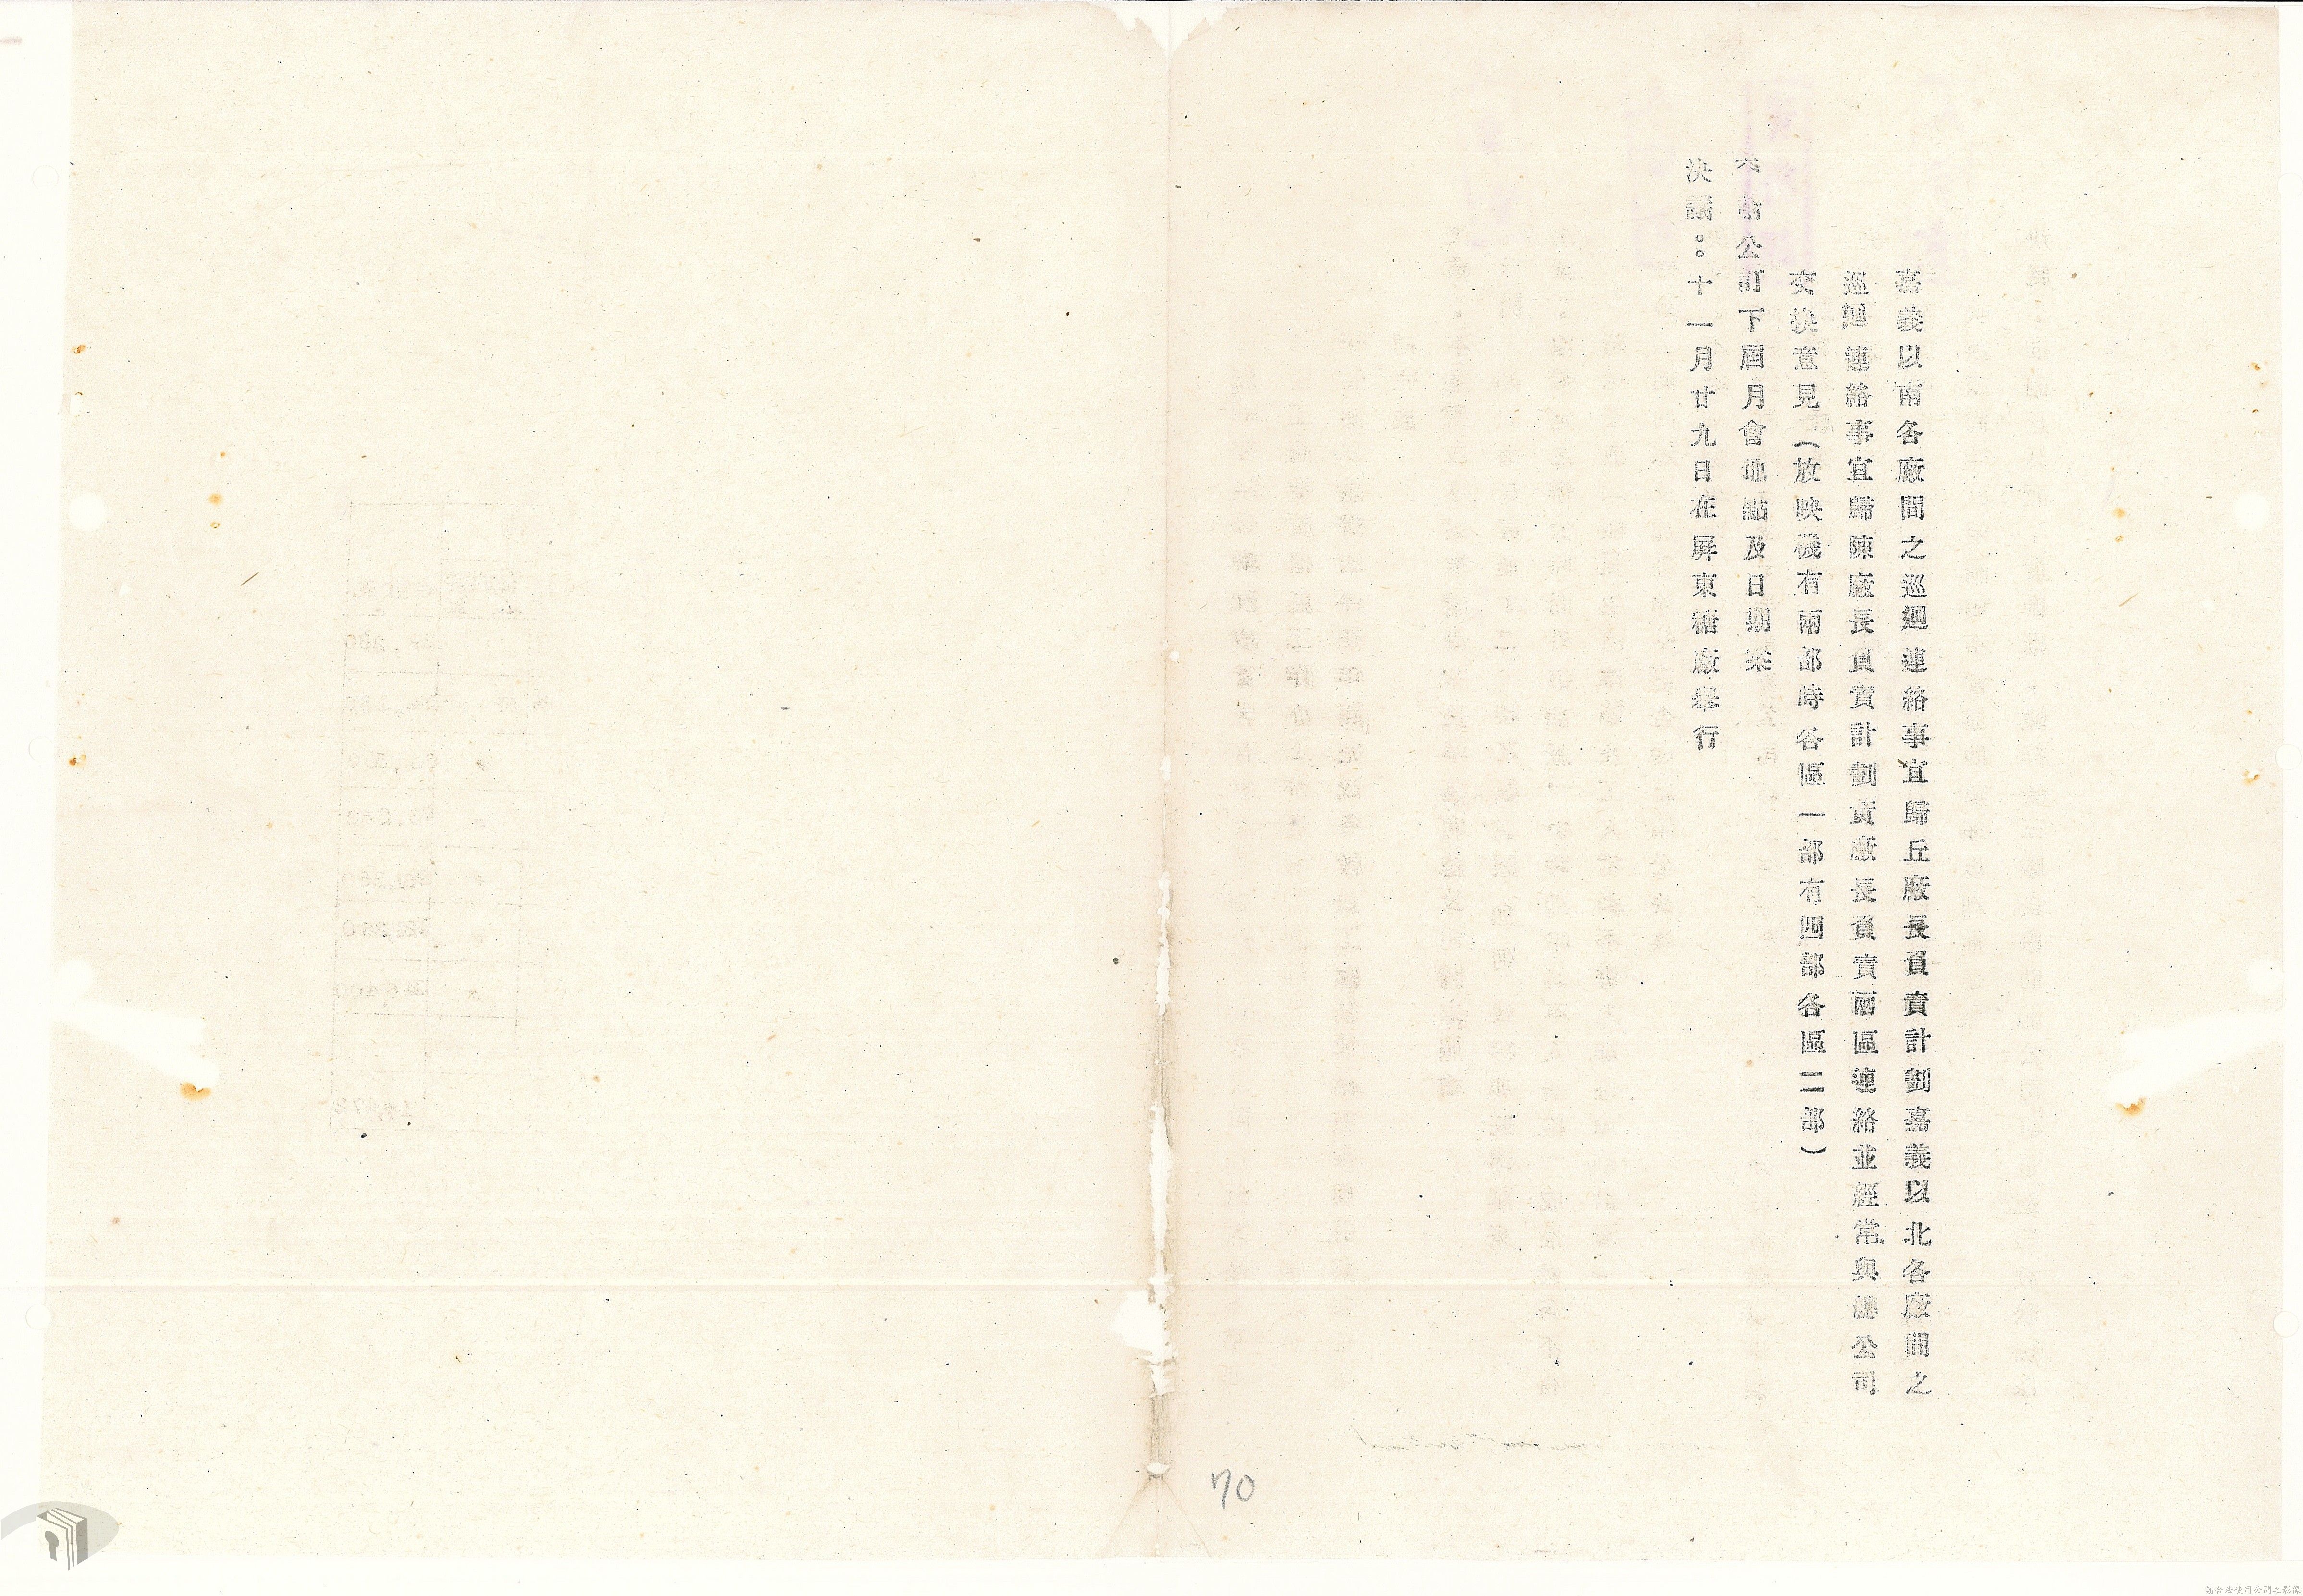 嘉義以南各廠間之巡迴連絡事宜歸丘廠長負責計劃嘉義以北各廠間之
巡迴連絡事宜歸陳廠長負責計劃黃廠長負責兩區連絡並經常與總公司
交換意見(放映機有兩部時各區一部有四部各區二部)
六請公訂下屆月會地點及日期案
決議:。十一月廿九日在屏東糖廠舉行
70
請合法使用公開之影像